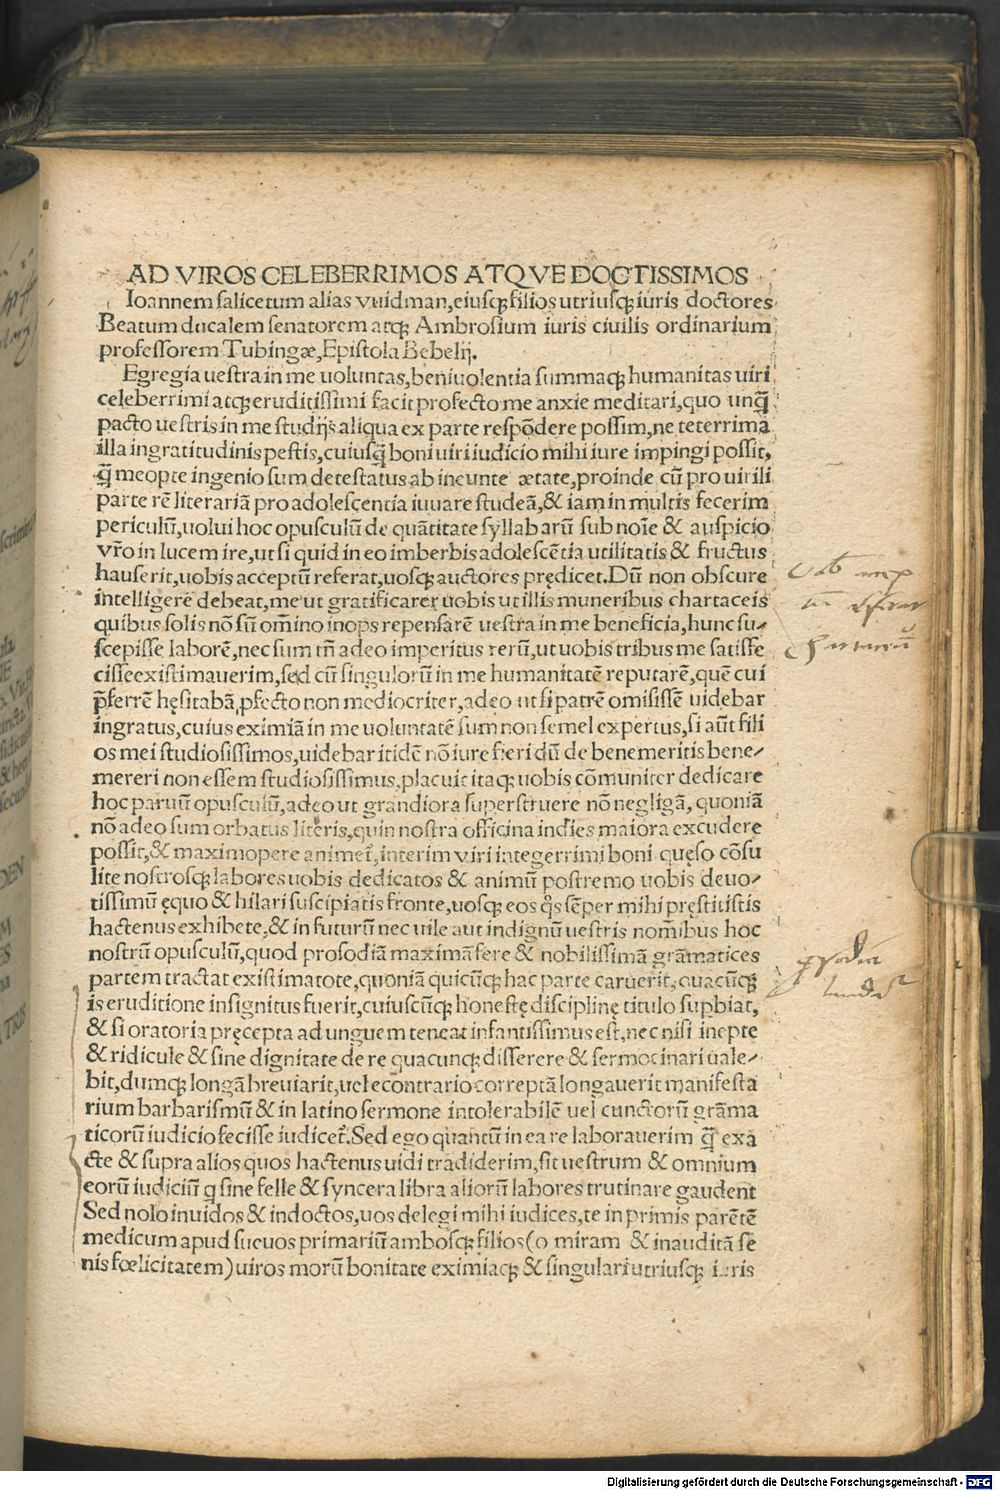 AD VIROS CELEBERRIMOS ATQVE DOCTISSIMOS
Ioannem salicetum alias vuidman, eiusqꝫ filios utriusqꝫ iuris doctores
Beatum ducalem senatorem atqꝫ Ambrosium iuris ciuilis ordinarium
professorem Tubingæ, Epistola Bebelij.
Egregia uestra in me uoluntas, beniuolentia summaqꝫ humanitas uiri
celeberrimi atqꝫ eruditissimi facit profecto me anxie meditari, quo unq̃
pacto uestris in me studijs aliqua ex parte respõdere possim, ne teterrima
illa ingratitudinis pestis, cuiusq̃ boni uiri iudicio mihi iure impingi possit,
q̃ meopte ingenio sum detestatus ab ineunte ætate, proinde cũ pro uirili
parte rẽ literariã pro adolescentia iuuare studeã, & iam in multis fecerim
periculũ, uolui hoc opusculũ de quãtitate syllabarũ sub noīe & auspicio
vr̃o in lucem ire, ut si quid in eo imberbis adolescẽtia utilitatis & fructus
hauserit, uobis acceptũ referat, uosqꝫ auctores prędicet. Dũ non obscure
intelligere debeat, me ut gratificarer uobis ut illis muneribus chartaceis
quibus solis nõ sũ om̃ino inops repensarẽ uestra in me beneficia, hunc su⸗
scepisse laborẽ, nec sum tñ adeo imperitus rerũ, ut uobis tribus me satisfe
cisse existimauerim, sed cũ singulorũ in me humanitatẽ reputarẽ, quẽ cui
p̃ferrẽ hęsitabã, ꝓfecto non mediocriter, adeo ut si patrẽ omisissẽ uidebar
ingratus, cuius eximiã in me uoluntatẽ sum non semel expertus, si aũt fili
os mei studiosissimos, uidebar itidẽ nõ iure fieri dũ de benemeritis bene⸗
mereri non essem studiosissimus, placuit itaqꝫ uobis cõmuniter dedicare
hoc paruũ opusculũ, adeo ut grandiora superstruere nõ negligã, quoniã
nõ adeo sum orbatus literis, quin nostra officina indies maiora excudere
possit, & maximopere animet̃, interim viri integerrimi boni quęso cõsu
lite nostrosqꝫ labores uobis dedicatos & animũ postremo uobis deuo⸗
tissimũ ęquo & hilari suscipiatis fronte, uosqꝫ eos q̃s sẽper mihi pręstitistis
hactenus exhibete, & in futurũ nec uile aut indignũ uestris nom̃ibus hoc
nostrũ opusculũ, quod prosodiã maximã fere & nobilissimã grãmatices
partem tractat existimatote, quoniã quicũqꝫ hac parte caruerit, quacũqꝫ
is eruditione insignitus fuerit, cuiuscũqꝫ honestę disciplinę titulo supbiat,
& si oratoria pręcepta ad unguem teneat infantissimus est, nec nisi inepte
& ridicule & sine dignitate de re quacunqꝫ disserere & sermocinari uale⸗
bit, dumqꝫ longã breuiarit, uel econtrario correptã longauerit manifesta
rium barbarismũ & in latino sermone intolerabilẽ uel cunctorũ grãma
ticorũ iudicio fecisse iudicet̃. Sed ego quantũ in ea re laborauerim q̃ exa
cte & supra alios quos hactenus uidi tradiderim, sit uestrum & omnium
eorũ iudiciũ q̃ sine felle & syncera libra aliorũ labores trutinare gaudent
Sed nolo inuidos & indoctos, uos delegi mihi iudices, te in primis parẽtẽ
medicum apud sueuos primariũ ambosqꝫ filios (o miram & inauditã se
nis fœlicitatem) uiros morũ bonitate eximiaqꝫ & singulari utriusqꝫ iuris
Digitalisierung gefördert durch die Deutsche Forschungsgemeinschaft - DFG